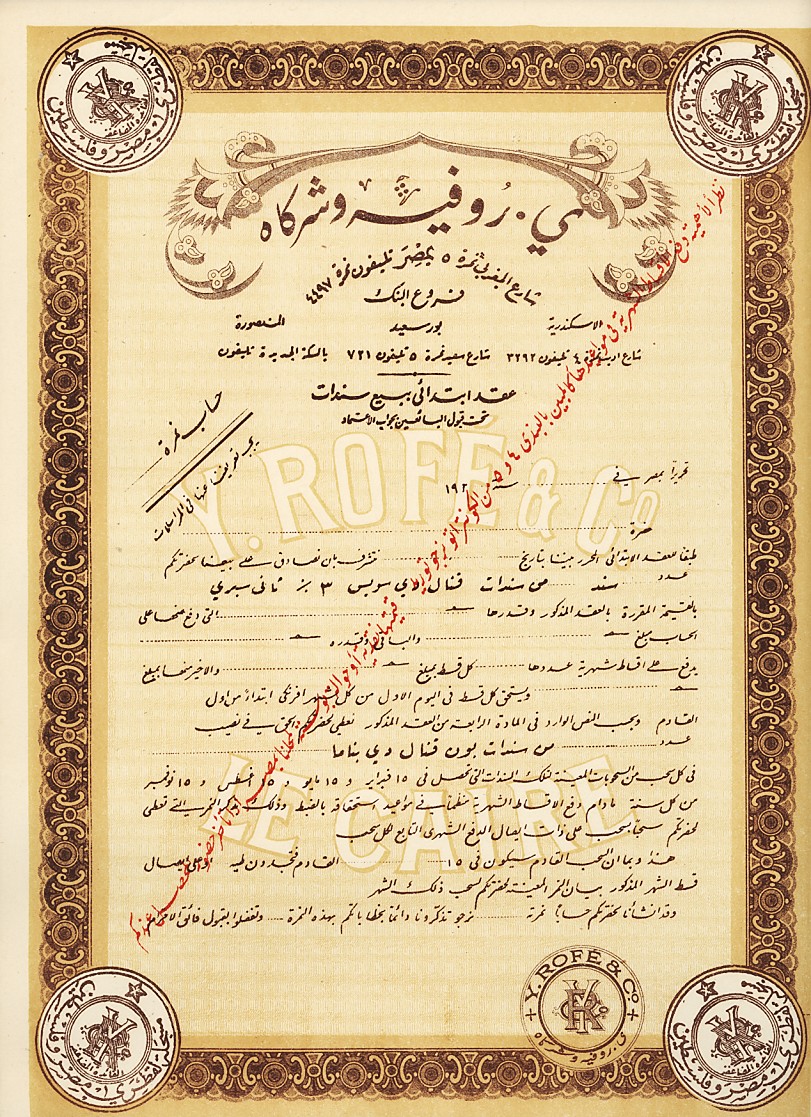 ي. روفيه وشركاه
شارع المغربي نمرة ٥ بمصر تليفون نمرة ٤٤٩٧
فروع البنك
الاسكندرية بورسعيد المنصورة
شارع اديب نمرة ٤ تليفون ٣٢٩٢ شارع سعيد نمرة ٥ تليفون ٧٢١ بالسكة الجديدة تليفون
عقد ابتدائي ببيع سندات
تحت قبول البائعين بجواب الاعتماد
حساب نمرة
يجب تعريفنا عنها في المراسلات
تحريراً بمصر في سنة ١٩٢
Y. ROFÉ & Co
حضرة
طبقاً للعقد الابتدائي المحرر بيننا بتاريخ نتشرف بان نصادق على بيعنا لحضرتكم
عدد سند من سندات قنال دي سويس ٣ ٪ ثاني سيري
بالقيمة المقررة بالعقد المذكور وقدرها التي دفع منها على
الحساب مبلغ والباقي وقدره
يدفع على اقساط شهرية عددها كل قسط بمبلغ والاخير منها بمبلغ
ويستحق كل قسط في اليوم الاول من كل شهر افرنكي ابتداءً من اول
القادم وبحسب النص الوارد في المادة الرابعة من العقد المذكور نعطي لحضرتكم الحق في نصيب
عدد من سندات بون قنال دي بناما
في كل سحب من السحوبات المعينة لتلك السندات التي تحصل في ١٥ فبراير و ١٥ مايو و ١٥ اغسطس و ١٥ نوفمبر
من كل سنة مادام دفع الاقساط الشهرية منتظماً في مواعيد استحقاقه بالضبط وذلك النمر التي تعطى
لحضرتكم سحباً بسحب على ذات ايصال الدفع الشهري التابع لكل سحب
LE CAIRE
هذا وبما ان السحب القادم سيكون في ١٥ القادم فتجدون طيه ايصال
قسط الشهر المذكور ببيان النمر المعينة لحضرتكم لسحب ذلك الشهر
وقد انشأنا لحضرتكم حساباً نمرة نرجو تذكرونا دائماً بخطاباتكم بهذه النمرة وتفضلوا بقبول فائق الاحترام
نظراً لاهمية دفع الاقساط الشهرية في مواعيدها كالمبين بالبندي ٤ و ٥ من الكونتراتو نرجو
Y. ROFÉ & Co
ي. روفيه وشركاه